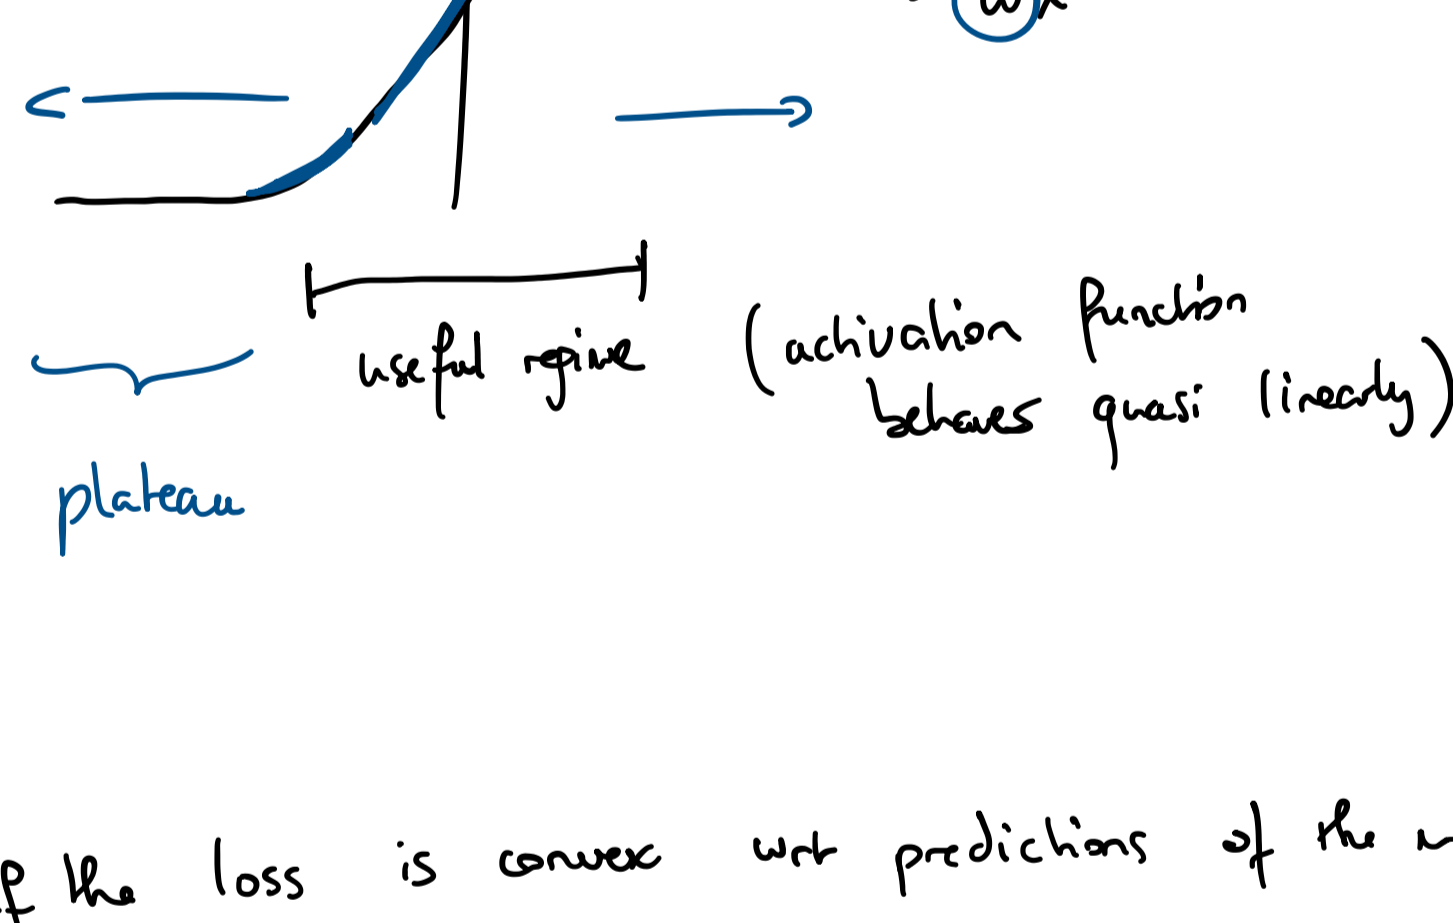 useful regime (activation function
behaves quasi linearly)
plateau
the loss is convex wrt predictions of the